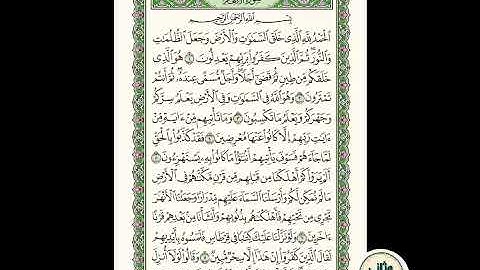 بِسْمِ ٱللَّهِ ٱلرَّحْمَٰنِ ٱلرَّحِيمِ
ٱلْحَمْدُ لِلَّهِ ٱلَّذِى خَلَقَ ٱلسَّمَٰوَٰتِ وَٱلْأَرْضَ وَجَعَلَ ٱلظُّلُمَٰتِ
وَٱلنُّورَ ثُمَّ ٱلَّذِينَ كَفَرُوا۟ بِرَبِّهِمْ يَعْدِلُونَ ١ هُوَ ٱلَّذِى
خَلَقَكُم مِّن طِينٍ ثُمَّ قَضَىٰٓ أَجَلًا وَأَجَلٌ مُّسَمًّى عِندَهُۥ ثُمَّ أَنتُمْ
تَمْتَرُونَ ٢ وَهُوَ ٱللَّهُ فِى ٱلسَّمَٰوَٰتِ وَفِى ٱلْأَرْضِ يَعْلَمُ سِرَّكُمْ
وَجَهْرَكُمْ وَيَعْلَمُ مَا تَكْسِبُونَ ٣ وَمَا تَأْتِيهِم مِّنْ ءَايَةٍ مِّنْ
ءَايَٰتِ رَبِّهِمْ إِلَّا كَانُوا۟ عَنْهَا مُعْرِضِينَ ٤ فَقَدْ كَذَّبُوا۟ بِٱلْحَقِّ
لَمَّا جَآءَهُمْ فَسَوْفَ يَأْتِيهِمْ أَنۢبَٰٓؤُا۟ مَا كَانُوا۟ بِهِۦ يَسْتَهْزِءُونَ ٥
أَلَمْ يَرَوْا۟ كَمْ أَهْلَكْنَا مِن قَبْلِهِم مِّن قَرْنٍ مَّكَّنَّٰهُمْ فِى ٱلْأَرْضِ
مَا لَمْ نُمَكِّن لَّكُمْ وَأَرْسَلْنَا ٱلسَّمَآءَ عَلَيْهِم مِّدْرَارًا وَجَعَلْنَا ٱلْأَنْهَٰرَ
تَجْرِى مِن تَحْتِهِمْ فَأَهْلَكْنَٰهُم بِذُنُوبِهِمْ وَأَنشَأْنَا مِنۢ بَعْدِهِمْ قَرْنًا
ءَاخَرِينَ ٦ وَلَوْ نَزَّلْنَا عَلَيْكَ كِتَٰبًا فِى قِرْطَاسٍ فَلَمَسُوهُ بِأَيْدِيهِمْ
لَقَالَ ٱلَّذِينَ كَفَرُوٓا۟ إِنْ هَٰذَآ إِلَّا سِحْرٌ مُّبِينٌ ٧ وَقَالُوا۟ لَوْلَآ أُنزِلَ